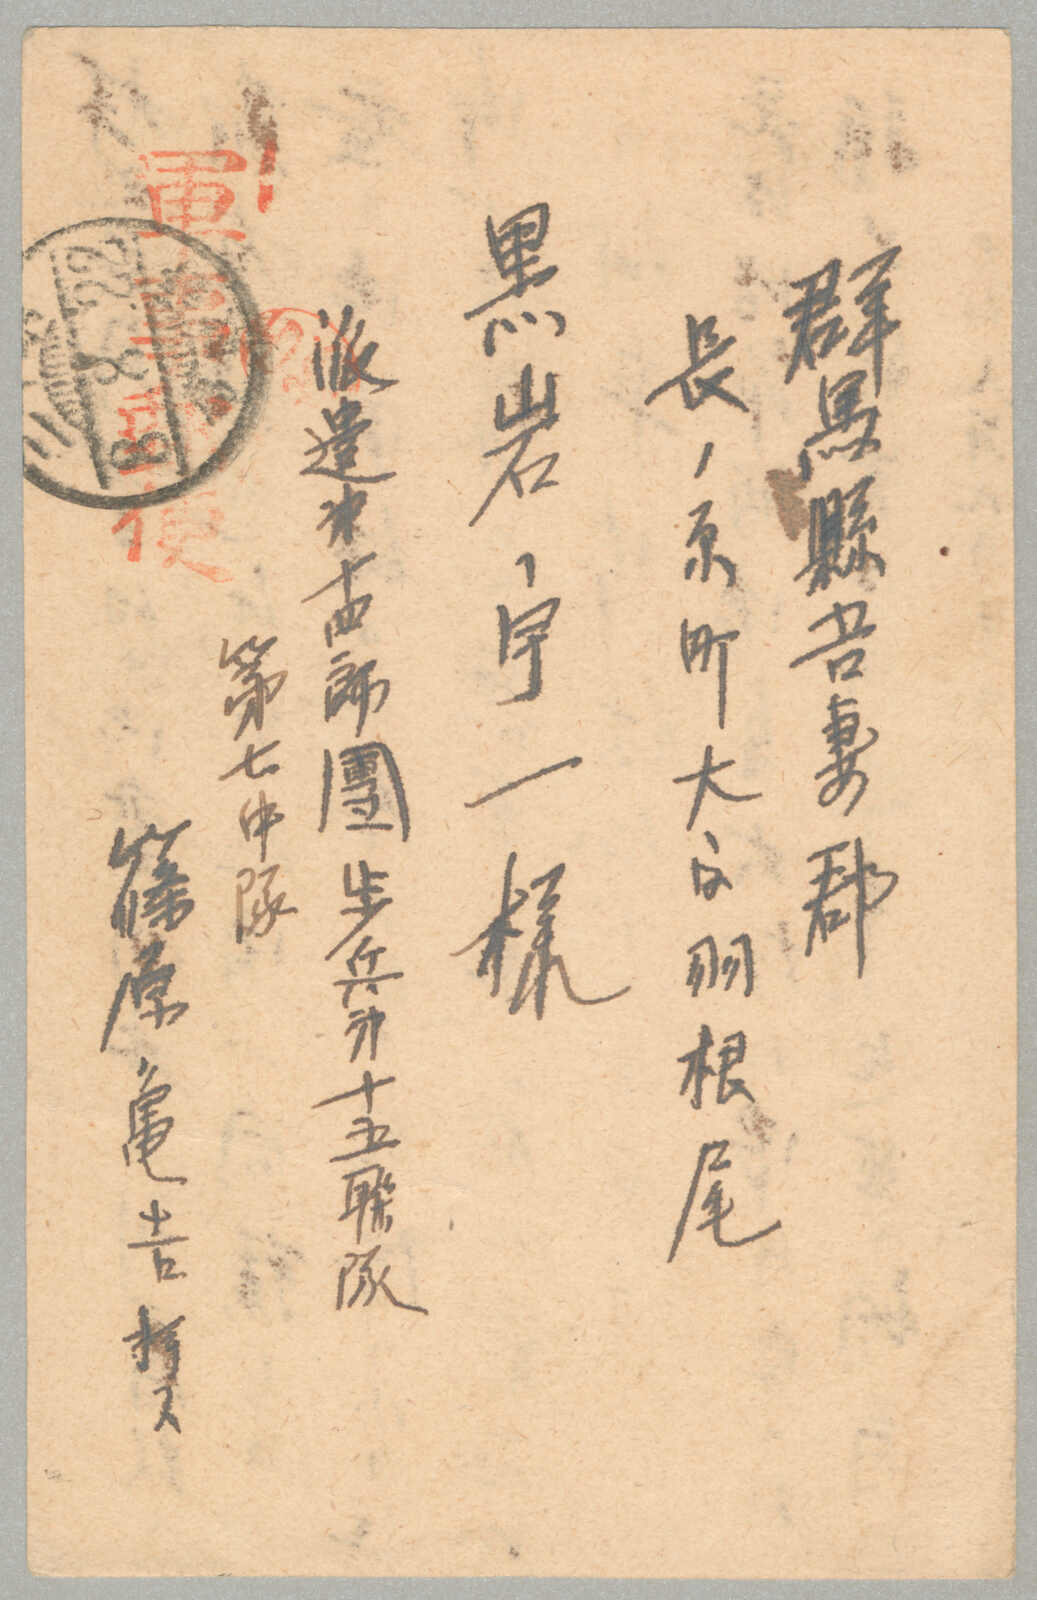 群馬縣吾妻郡
長ノ原町大字羽根尾
黒岩宇一様
派遣第十四師團歩兵第十五聯隊
第七中隊
篠原亀吉拜
軍事郵便